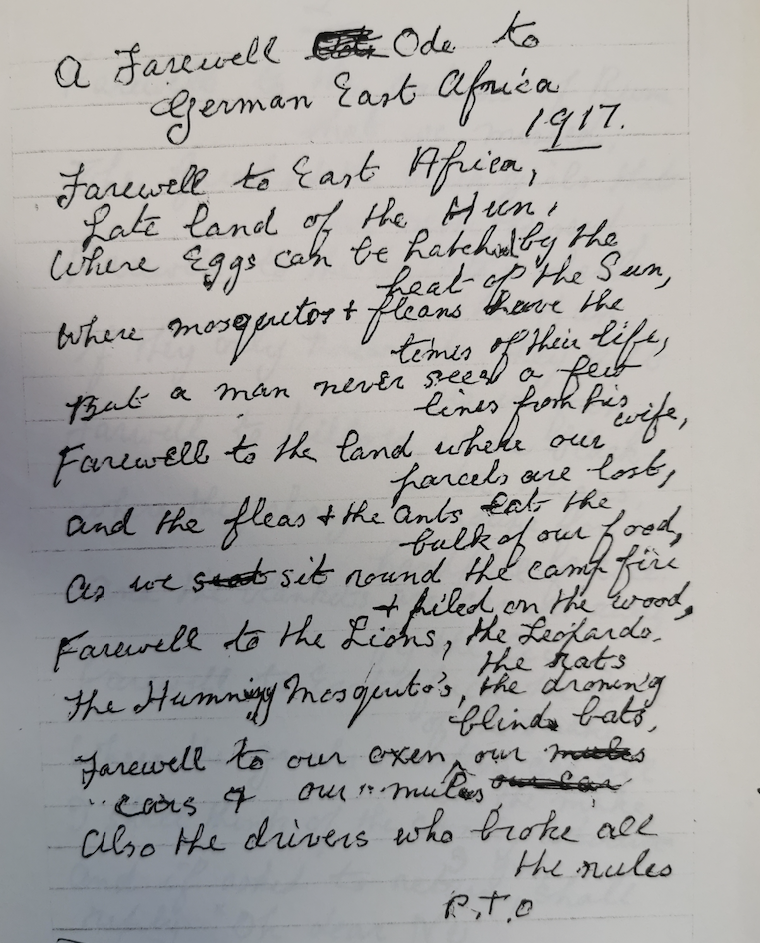 A Farewell Ode to
German East Africa
1917.
Farewell to East Africa,
Late land of the Hun,
Where Eggs can be hatched by the
heat of the Sun,
Where mosquitos & fleans have the
times of their life,
But a man never sees a few
lines from his wife,
Farewell to the land where our
parcels are lost,
and the fleas & the ants eat the
bulk of our food,
As we sit round the camp fire
& piled on the wood,
Farewell to the Lions, the Leopards,
the rats
The Humming Mosquito's, the droning
blind bats,
Farewell to our oxen, our
cars & our mules
Also the drivers who broke all
the rules
P.T.O